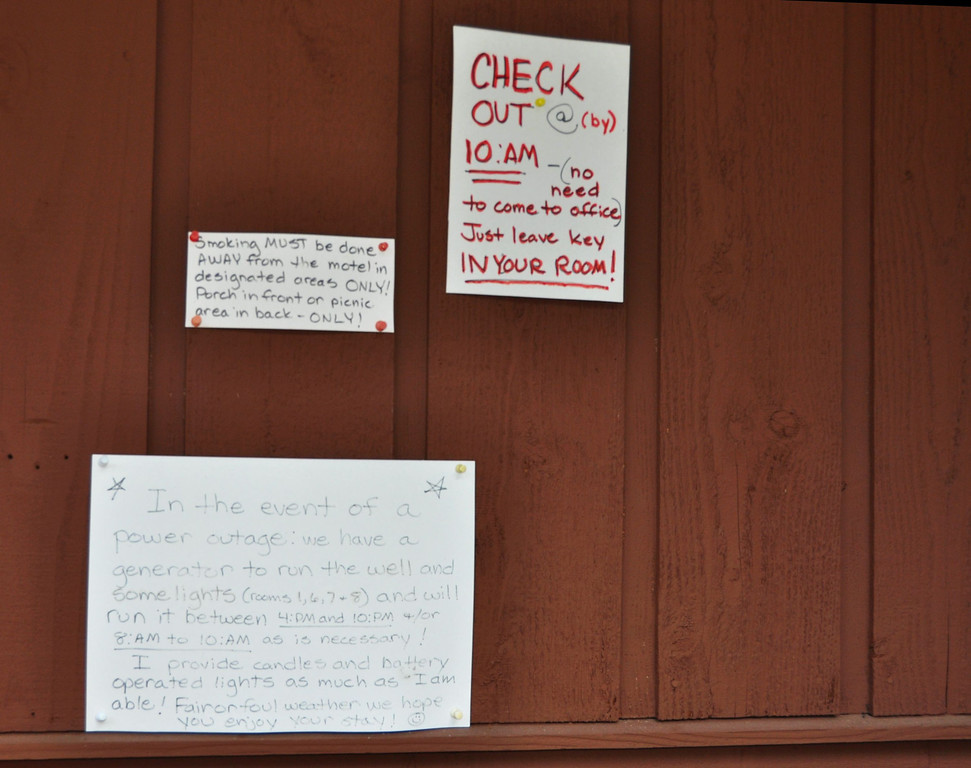 CHECK
OUT @ (by)
10:AM -(no
need
to come to office)
Just leave key
IN YOUR ROOM!
Smoking MUST be done
AWAY from the motel in
designated areas ONLY!
Porch in front or picnic
area in back - ONLY!
In the event of a
power outage: we have a
generator to run the well and
some lights (rooms 1,6,7+8) and will
run it between 4:PM and 10:PM +/or
8:AM to 10:AM as is necessary!
I provide candles and battery
operated lights as much as I am
able! Fair or foul weather we hope
you enjoy your stay!